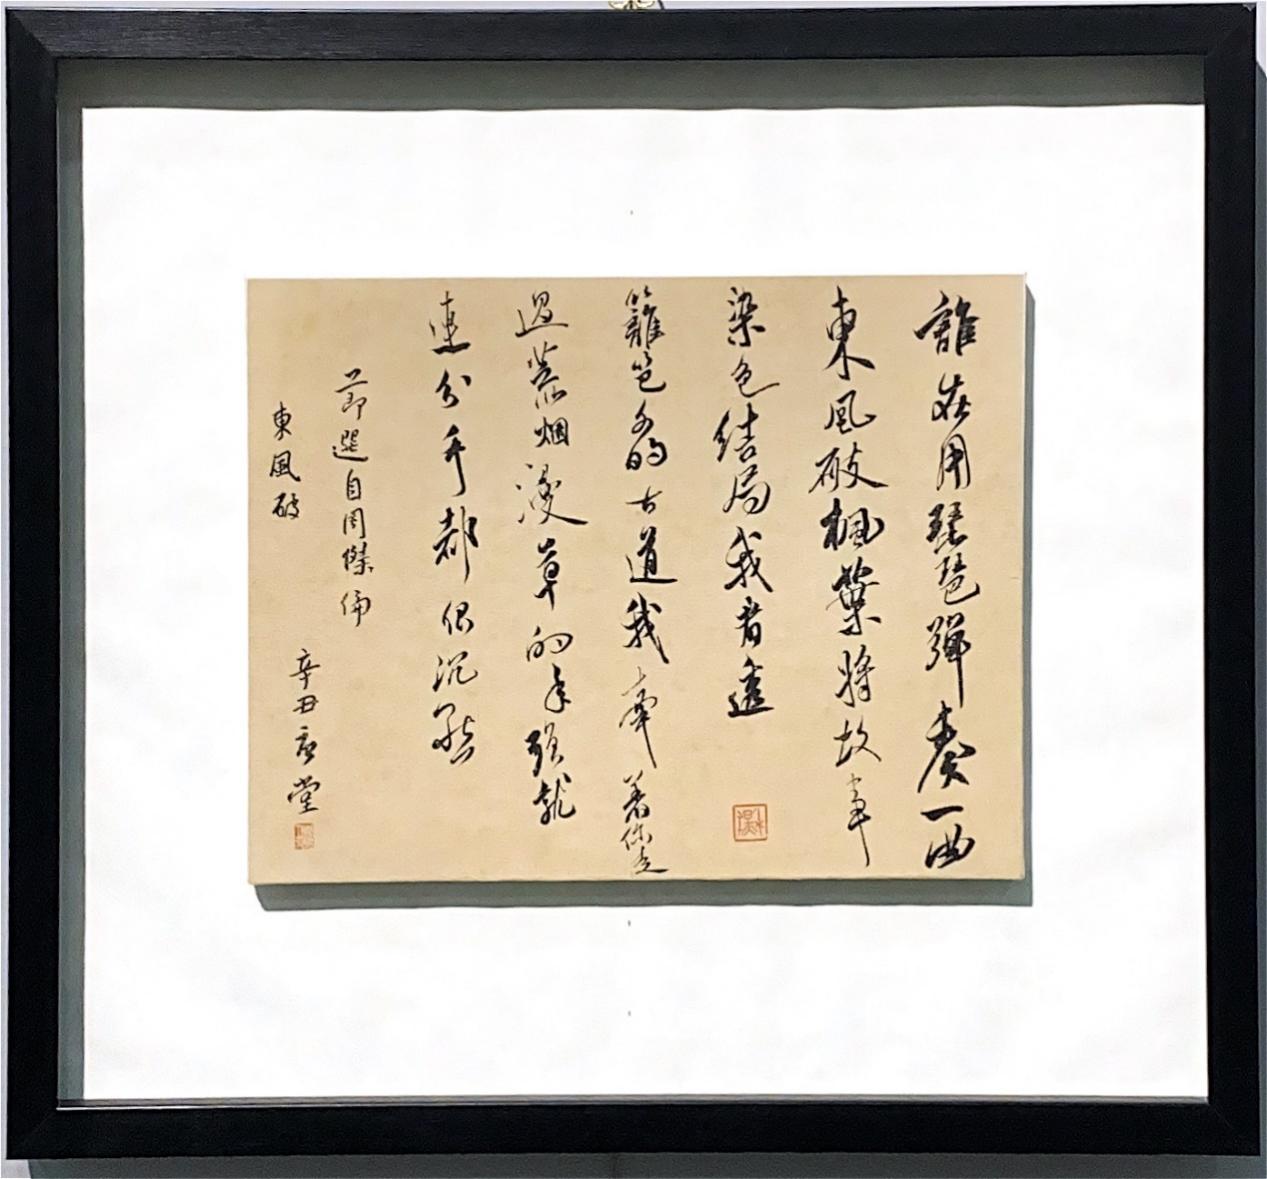 誰在用琵琶彈奏一曲
東風破楓葉將故事
染色結局我看透
籬笆外的古道我牽着你走
過荒烟漫草的年頭就
連分手都很沉默
節選自周傑倫
東風破 辛丑 堂